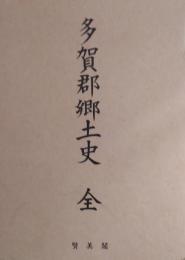 多賀郡郷土史 全
賢美閣